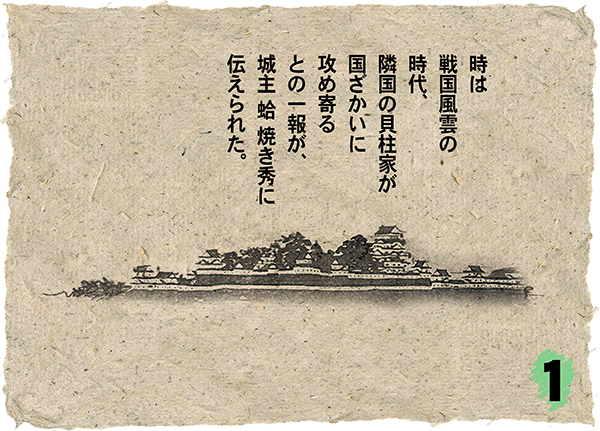 時は
戦国風雲の
時代、
隣国の貝柱家が
国ざかいに
攻め寄る
との一報が、
城主 蛤 焼き秀に
伝えられた。
1